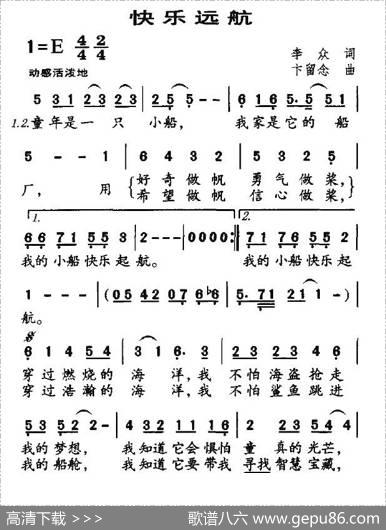 快乐远航
1=E 4/4 2/4
李众 词
动感活泼地
卞留念 曲
5 3 1 2 3 2 3 | 2 5 2 5 - - | 6 1 6 5. 5 5 1 |
1.2.童年是一只 小船， 我家是它的船
5 - - 1 | 6 4 3 2 | 5 3 2 5 |
厂， 用 好奇做帆 勇气做桨，
希望做帆 信心做桨，
1. 2.
6 6 7 1 5 5 3 | 2 - - - | 0 0 0 0 :| 7 1 7 6 5 5 2 |
我的小船快乐起 航。 我的小船快乐起
1 - - - | (0 5 4 2 0 7 6 b6 | 5. 7 1 2 1 1 -) |
航。
6 1 4 5 4 | 3 1 6. 3 | 2 3 2 3 4 |
穿过燃烧的 海 洋，我 不怕海盗抢走
穿过浩瀚的 海 洋，我 不怕鲨鱼跳进
5 3 5 2 - | 3 4 5 3 2 1 | 2. 3 4 3 2 |
我的梦想， 我知道它会惧怕 童 真的光芒，
我的船舱， 我知道它要带我 寻找智慧宝藏，
高清下载 >>>
歌谱八六 www.gepu86.com